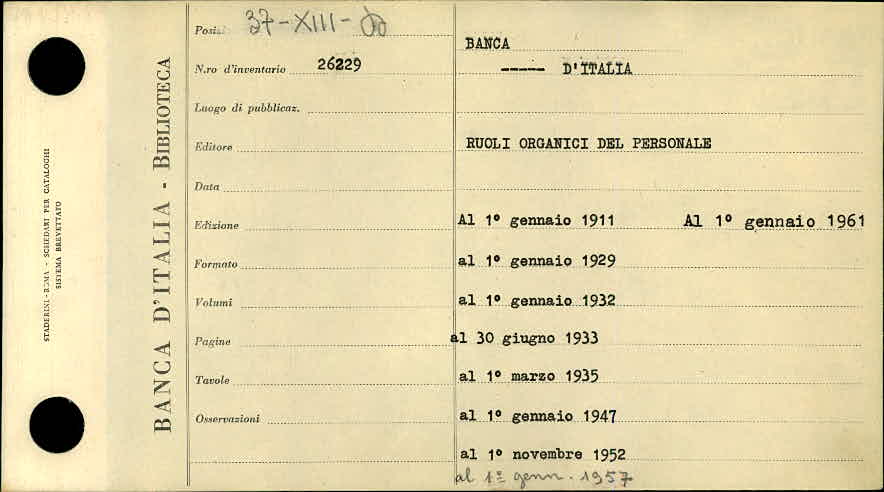 STADERINI - ROMA - SCHEDARI PER CATALOGHI
SISTEMA BREVETTATO
BANCA D'ITALIA - BIBLIOTECA
37-XIII-
N.ro d'inventario 26229
Luogo di pubblicaz.
Editore
Data
Edizione
Formato
Volumi
Pagine
Tavole
Osservazioni
BANCA
----- D'ITALIA
RUOLI ORGANICI DEL PERSONALE
Al 1º gennaio 1911 Al 1º gennaio 1961
al 1º gennaio 1929
al 1º gennaio 1932
al 30 giugno 1933
al 1º marzo 1935
al 1º gennaio 1947
al 1º novembre 1952
al 1º genn. 1957